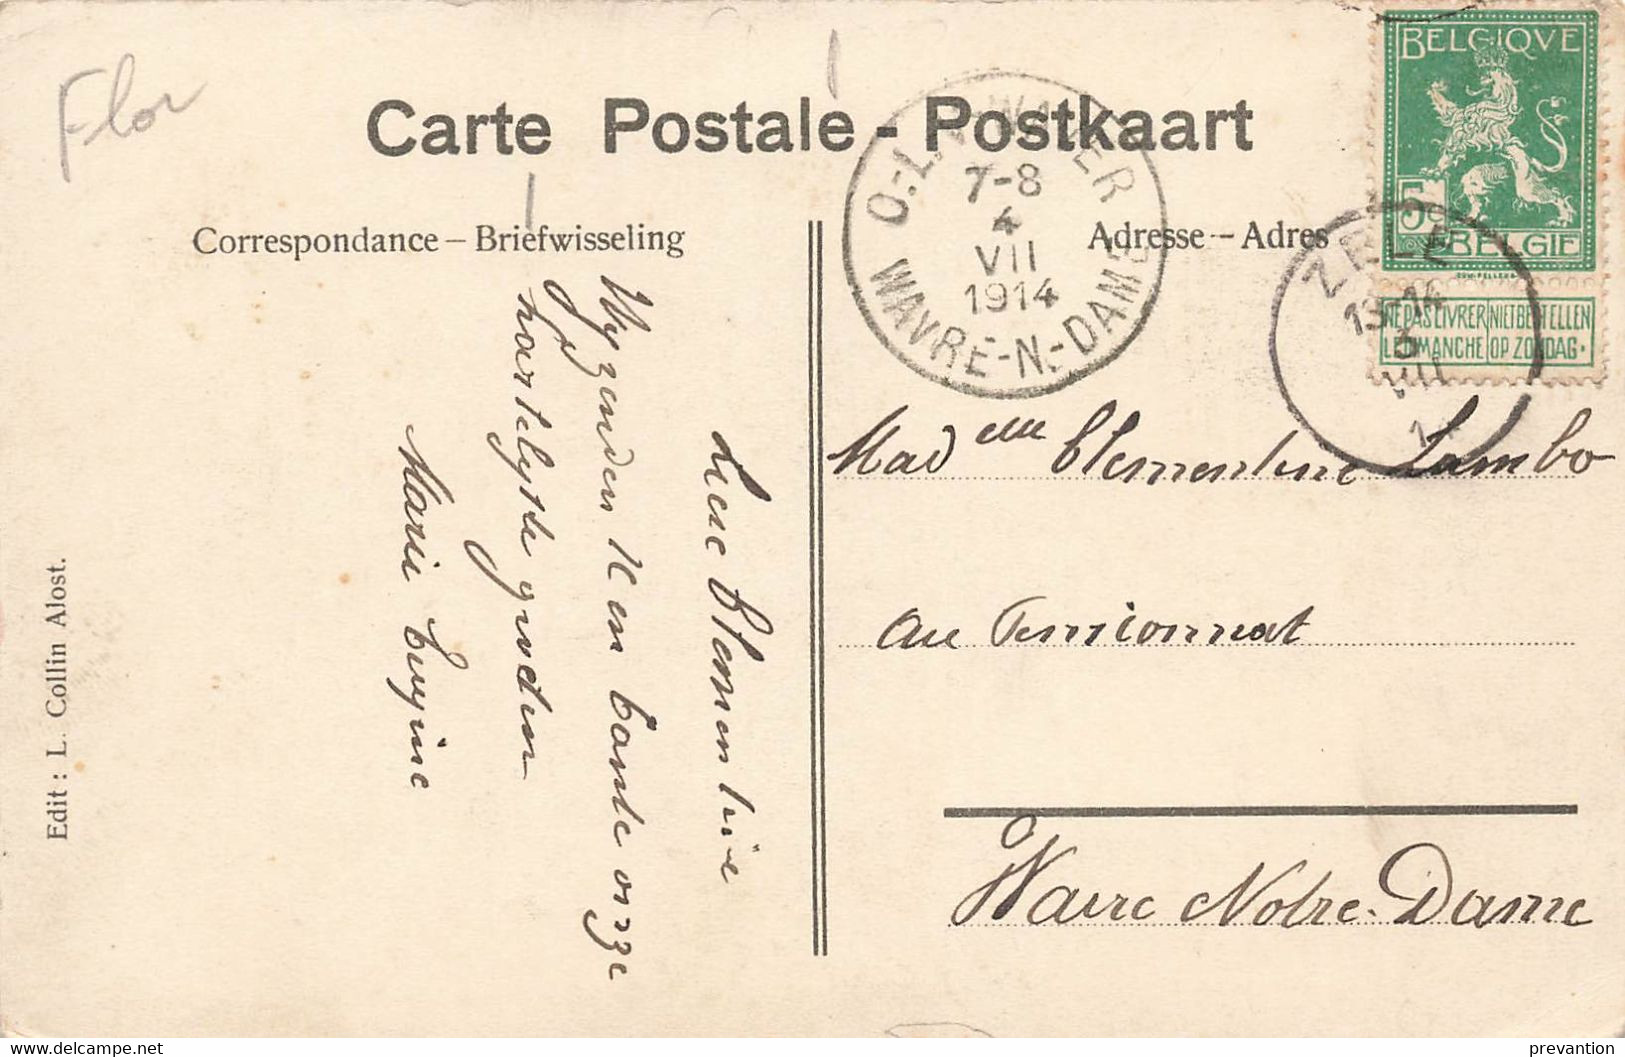 Flor
Carte Postale - Postkaart
Correspondance – Briefwisseling
Adresse – Adres
BELGIQVE
5c
BELGIE
NE PAS LIVRER NIET BESTELLEN
LE DIMANCHE OP ZONDAG.
O.-L.-V.-WAVER
7-8
4
VII
1914
WAVRE-N.-DAME
ZELE
13-14
3
VII
Lieve Clementine
Wy zenden U en Camte onze
hartelyste groeten
Marie Eugine
Madelle Clementine Lambo
au Pensionnat
Wavre Notre-Dame
Edit : L. Collin Alost.
prevantion